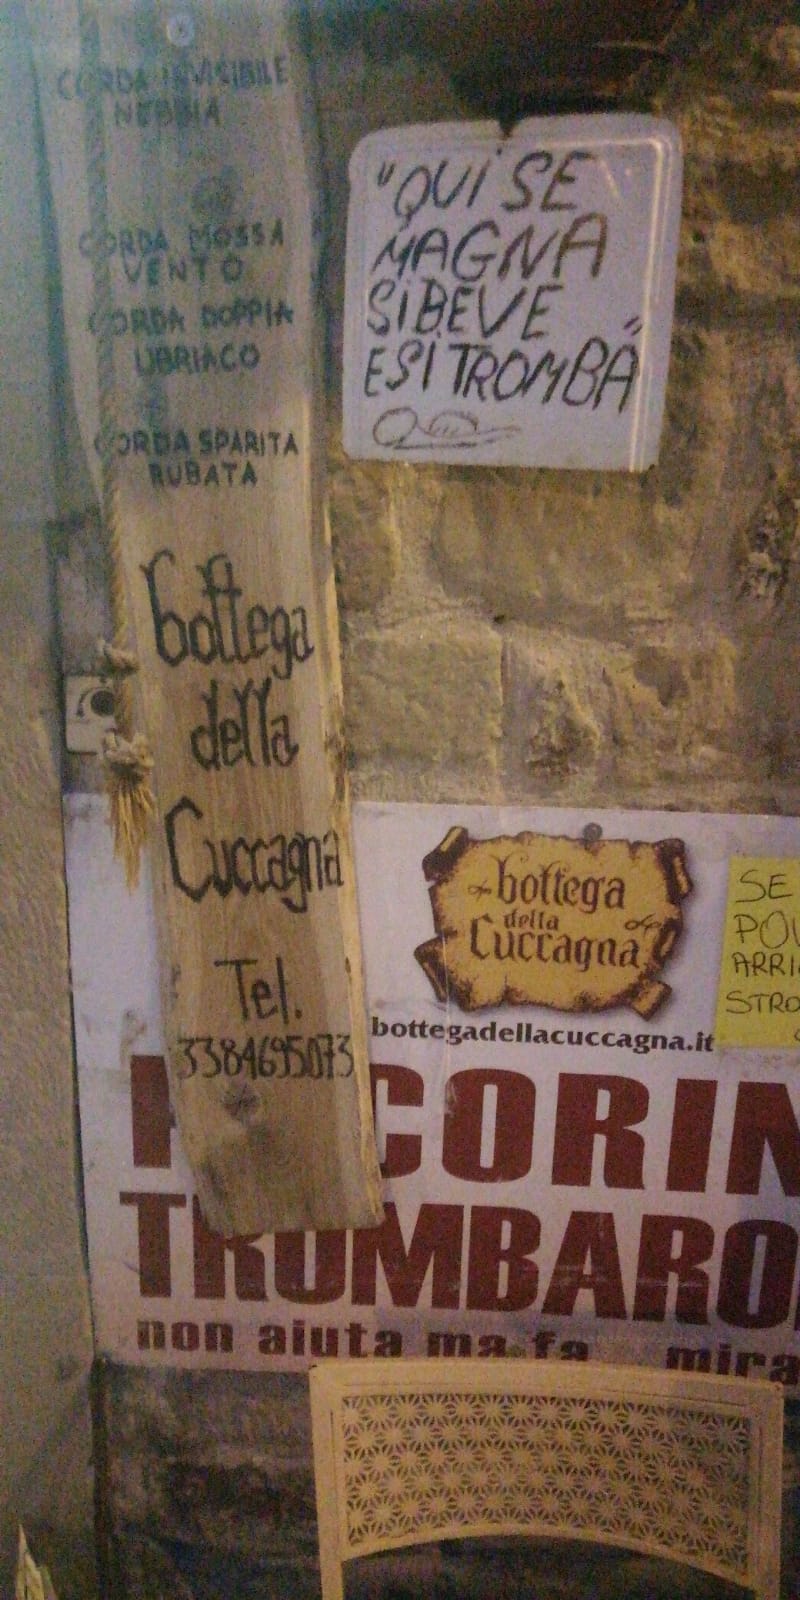 CORDA INVISIBILE
NEBBIA
CORDA MOSSA
VENTO
CORDA DOPPIA
UBRIACO
CORDA SPARITA
RUBATA
bottega
della
Cuccagna
Tel.
3384695073
"QUI SE
MAGNA
SI BEVE
E SI TROMBA"
bottega
della
Cuccagna
bottegadellacuccagna.it
SE
POV
ARRI
STRO
CORIN
TROMBARO
non aiuta ma fa mira